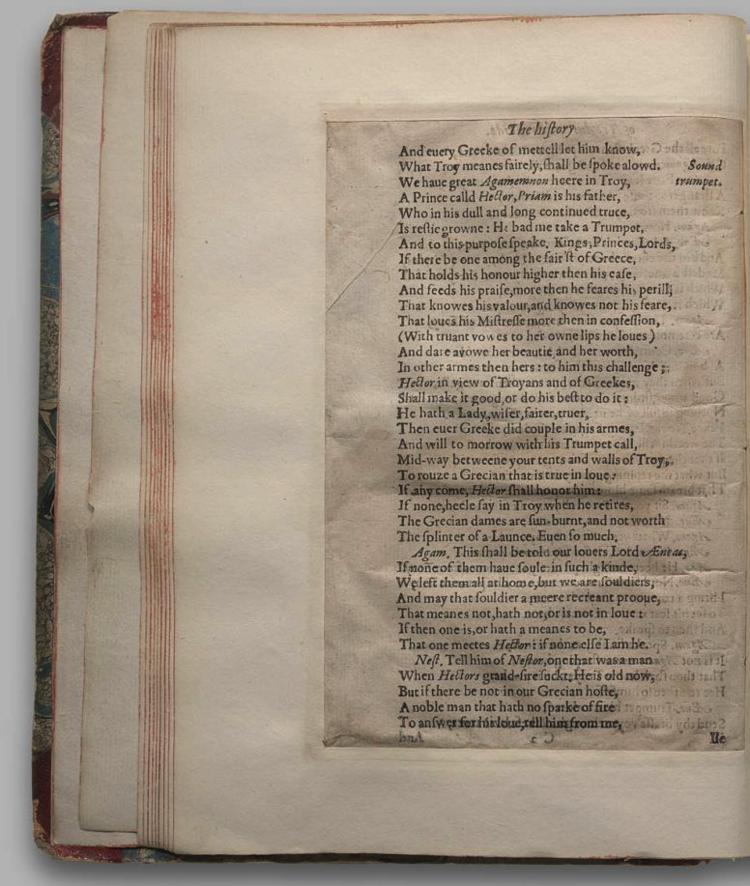 The hiſtory
And euery Greeke of mettell let him know,
What Troy meanes fairely, ſhall be ſpoke alowd. Sound
We haue great Agamemnon heere in Troy, trumpet.
A Prince calld Hector, Priam is his father,
Who in his dull and long continued truce,
Is reſtie growne: He bad me take a Trumpet,
And to this purpoſe ſpeake, Kings, Princes, Lords,
If there be one among the fair'ſt of Greece,
That holds his honour higher then his eaſe,
And feeds his praiſe, more then he feares his perill;
That knowes his valour, and knowes not his feare,
That loues his Miſtreſſe more then in confeſſion,
(With truant vowes to her owne lips he loues)
And dare avowe her beautie and her worth,
In other armes then hers: to him this challenge;
Hector in view of Troyans and of Greekes,
Shall make it good, or do his beſt to do it:
He hath a Lady, wiſer, fairer, truer,
Then euer Greeke did couple in his armes,
And will to morrow with his Trumpet call,
Mid-way betweene your tents and walls of Troy,
To rouze a Grecian that is true in loue:
If any come, Hector ſhall honor him:
If none, heele ſay in Troy when he retires,
The Grecian dames are ſun-burnt, and not worth
The ſplinter of a Launce. Euen ſo much.
Agam. This ſhall be told our louers Lord Æneas,
If none of them haue ſoule in ſuch a kinde,
We left them all at home, but we are ſouldiers,
And may that ſouldier a meere recreant prooue,
That meanes not, hath not, or is not in loue:
If then one is, or hath a meanes to be,
That one meetes Hector: if none elſe I am he.
Neſt. Tell him of Neſtor, one that was a man
When Hectors grand-ſire ſuckt; He is old now,
But if there be not in our Grecian hoſte,
A noble man that hath no ſparke of fire
To anſwer for his loue, tell him from me,
Ile